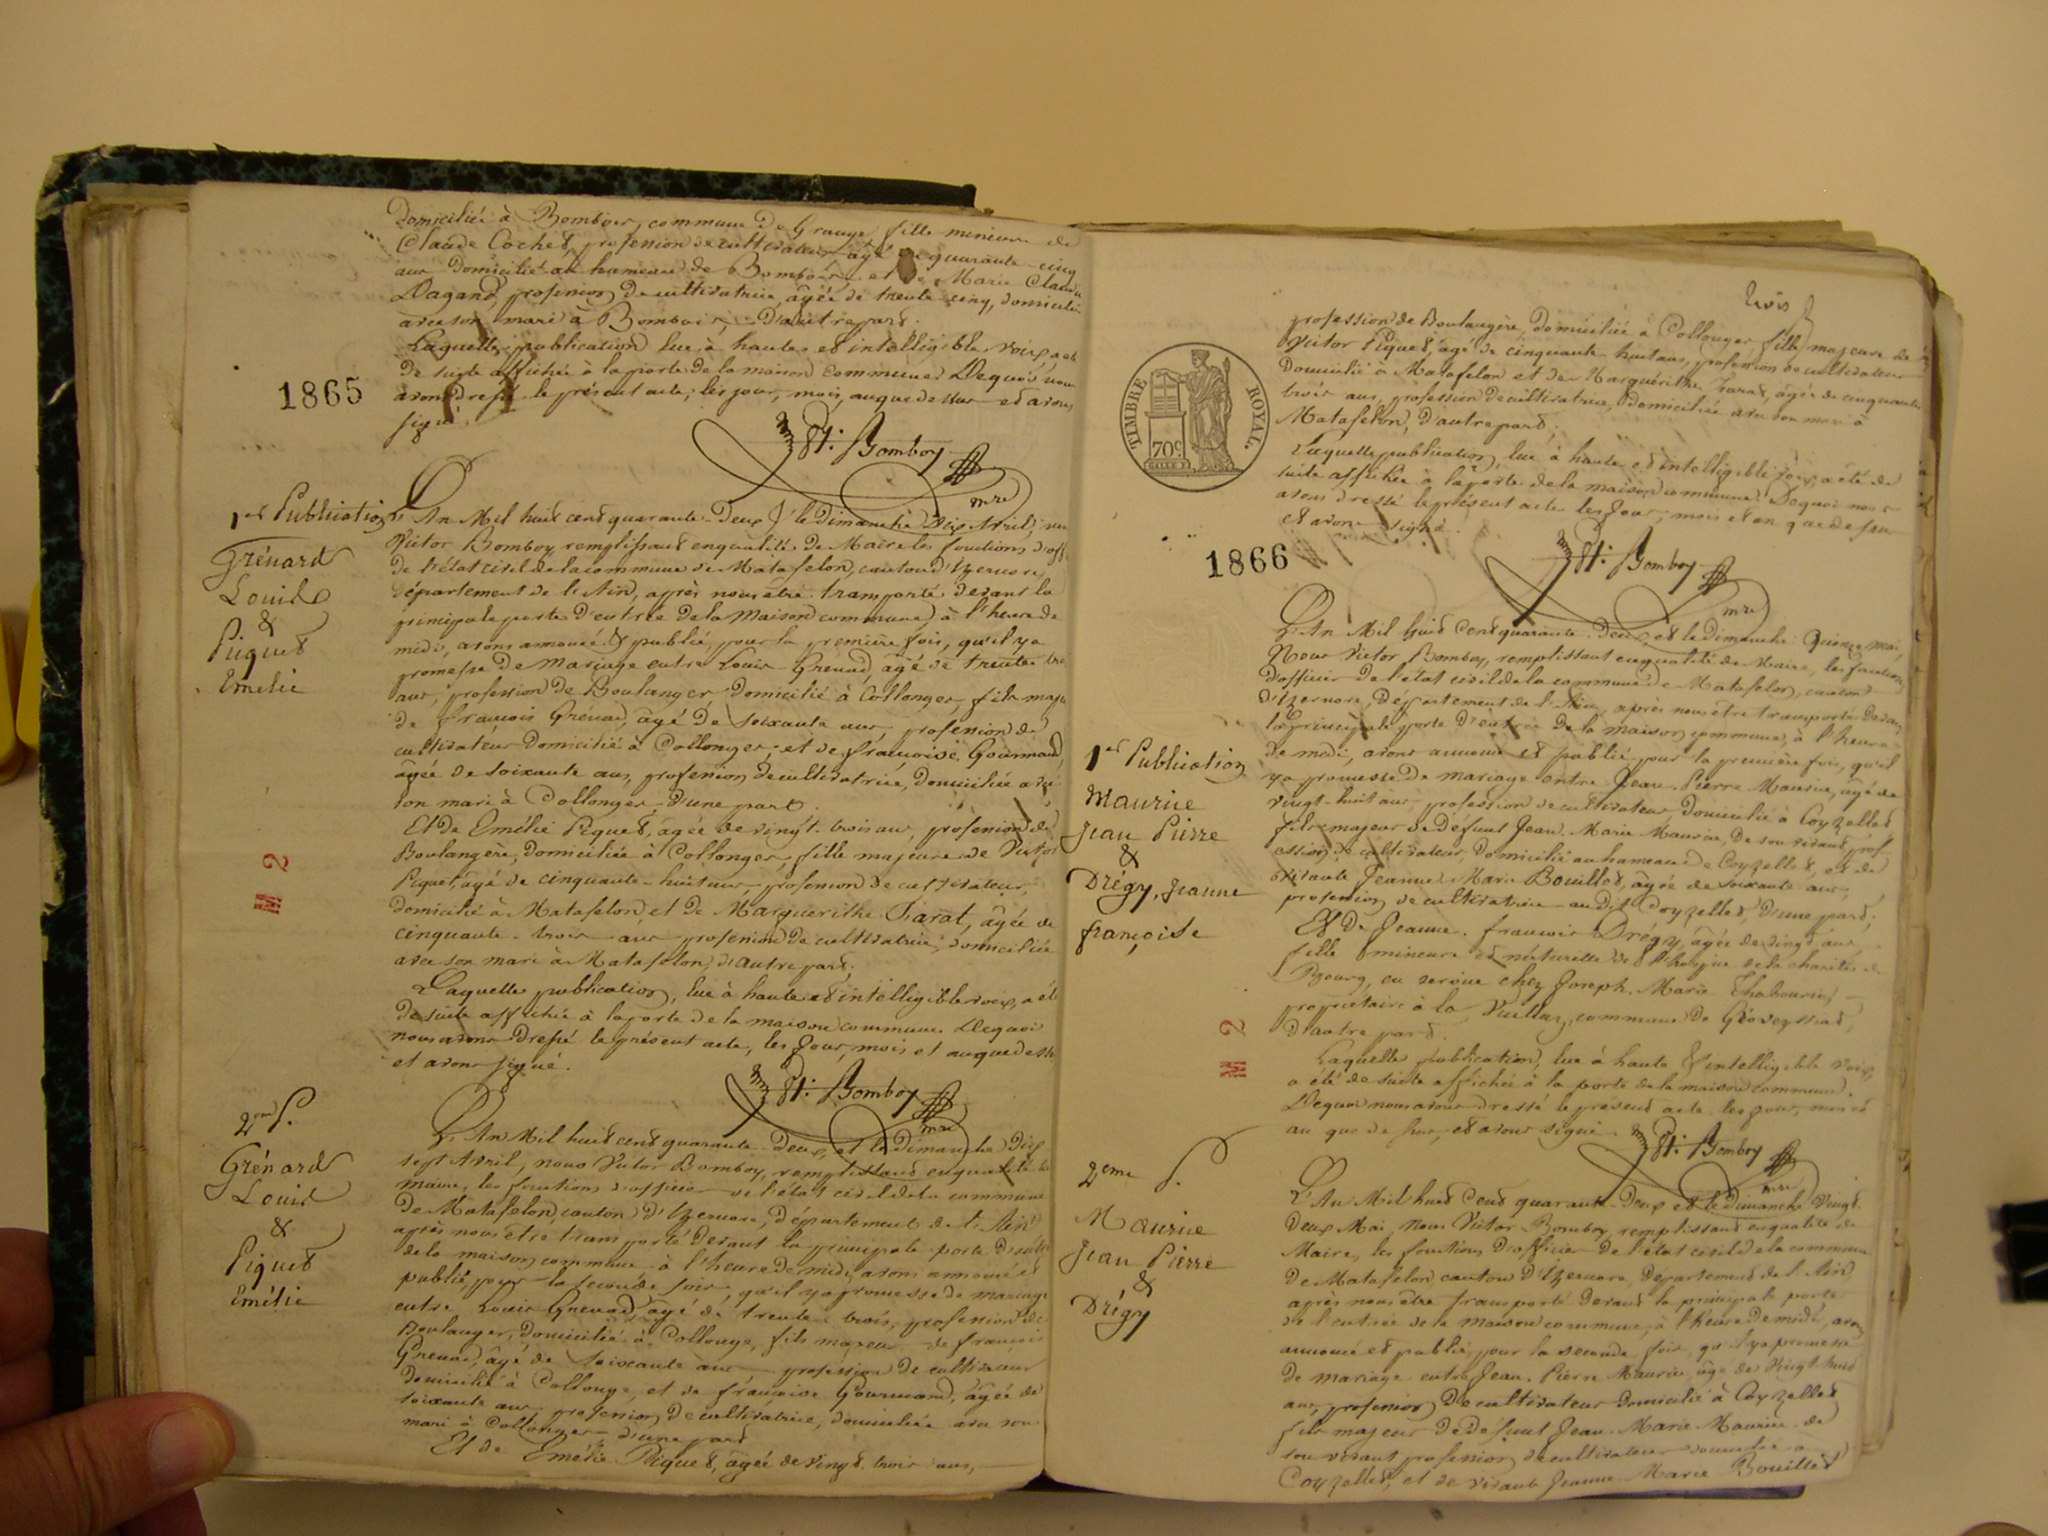 Domiciliée à Bombois, commune de Grange, fille mineure de
Claude Cochet, profession de cultivateur âgé de quarante-cinq
ans Domicilié au hameau de Bombois et de Marie Claudi
Dagand, profession de cultivatrice, âgée de trente cinq, domiciliée
avec son mari à Bombois, D'autre part.
Laquelle publication lue à haute et intelligible voix, a été
de suite affichée à la porte de la maison commune. De quoi nous
avons dressé le présent acte, les jour, mois, an que dessus et avons
signé.
1865
Vt: Bomboy
mre
1er Publication
Grénard
Louis
&
Piquet
Emélie
L'An Mil huit cent quarante-Deux, le Dimanche Dix Avril, nous
Victor Bomboy remplissant en qualité de Maire les fonctions d'off
de l'état civil de la commune de Matafelon, canton d'Izernore
département de l'Ain, après nous être transporté devant la
principale porte d'entrée de la Maison commune, à l'heure de
midi, avons annoncé & publié pour la première fois, qu'il y a
promesse de Mariage entre Louis Grénard, âgé de trente-trois
ans, profession de Boulanger domicilié à Collonges, fils maje
de françois Grénard, âgé de soixante ans, profession de
cultivateur domicilié à Collonges; et de françoise Gourmand,
âgée de soixante ans, profession de cultivatrice, domiciliée avec
son mari à Collonges, d'une part.
Et de Emélie Piquet, âgée de vingt-trois ans, profession de
Boulangère, domiciliée à Collonges, fille majeure de Victor
Piquet, âgé de cinquante-huit ans, profession de cultivateur,
domicilié à Matafelon, et de Marguerithe Tarat, âgée de
cinquante-trois ans profession de cultivatrice, domiciliée
avec son mari à Matafelon, d'autre part;
Laquelle publication, lue à haute et intelligible voix, a été
de suite affichée à la porte de la maison commune. De quoi
nous avons dressé le présent acte, les jour, mois et an que dessus
et avons signé.
2
Vt: Bomboy
mre
2me P.
Grénard
Louis
&
Piquet
Emélie
L'An Mil huit cent quarante-Deux, et le Dimanche Dix
sept Avril, nous Victor Bomboy, remplissant en qualité de
maire, les fonctions d'officier de l'état civil de la commune
De Matafelon, canton d'Izernore, département de l'Ain
après nous être transporté devant la principale porte d'entrée
de la maison commune à l'heure de midi, avons annoncé et
publié, pour la seconde fois, qu'il y a promesse de mariage
entre Louis Grénard âgé de trente-trois, profession de
Boulanger, domicilié à Collonge, fils majeur de françois
Grénard, âgé de soixante ans profession de cultivateur
domicilié à Collonge, et de françoise Gourmand, âgée de
soixante ans profession de cultivatrice, domiciliée avec son
mari à Collonges d'une part
Et de Emélie Piquet, âgée de vingt-trois ans,
trois
TIMBRE ROYAL
70c
profession de Boulangère, domiciliée à Collonges fille majeure de
Victor Piquet, âgé de cinquante-huit ans, profession de cultivateur
Domicilié à Matafelon et de Marguérithe Tarat, âgée de cinquante
trois ans, profession de cultivatrice, domiciliée avec son mari à
Matafelon, d'autre part;
Laquelle publication, lue à haute et intelligible voix, a été de
suite affichée à la porte de la maison commune. De quoi nous
avons dressé le présent acte les jour, mois et an que dessus
et avons signé.
1866
Vt: Bomboy
mre
L'An Mil huit Cent quarante-Deux, et le Dimanche Quinze mai,
Nous Victor Bomboy, remplissant en qualité de Maire, les fonctions
d'officier de l'état civil de la commune de Matafelon, canton
d'Izernore, Département de l'Ain, après nous être transporté Devant
la principale porte d'entrée de la maison commune, à l'heure
de midi, avons annoncé et publié pour la première fois, qu'il
y a promesse de mariage entre Jean-Pierre Maurice, âgé de
vingt-huit ans profession de cultivateur Domicilié à Coyzelles
fils majeur de Défunt Jean-Marie Maurice, de son vivant, prof-
ession de cultivateur, domicilié au hameau de Coyzelles, et de
vivante Jeanne Marie Bouillet, âgée de soixante ans,
profession de cultivatrice au dit Coyzelles, d'une part;
Et de Jeanne-françoise Drégy, âgée de vingt ans,
fille mineure et naturelle de l'hospice de la charité de
Bourg, en service chez Joseph-Marie Chabourin,
propriétaire à la commune de Géovreyssiat,
d'autre part.
Laquelle publication, lue à haute & intelligible voix,
a été de suite affichée à la porte de la maison commune.
De quoi nous avons dressé le présent acte les jour, mois et
an que de sur, et avons signé.
1er Publication
Maurice
Jean Pierre
&
Drégy, Jeanne
françoise
2
Vt: Bomboy
mre
2eme P.
Maurice
Jean Pierre
&
Drégy
L'An Mil huit Cent quarante-Deux et le Dimanche Vingt
Deux Mai, nous Victor Bomboy, remplissant en qualité de
Maire, les fonctions d'officier de l'état civil de la commune
De Matafelon canton d'Izernore, Département de l'Ain
après nous être transporté devant la principale porte
de l'entrée de la maison commune, à l'heure de midi, avons
annoncé et publié, pour la seconde fois, qu'il y a promesse
de mariage entre Jean-Pierre Maurice, âgé de Vingt-huit
ans, profession de cultivateur domicilié à Coyzelles
fils majeur de défunt Jean-Marie Maurice de
son vivant profession de cultivateur domicilié à
Coyzelles, et de vivante Jeanne-Marie Bouillet